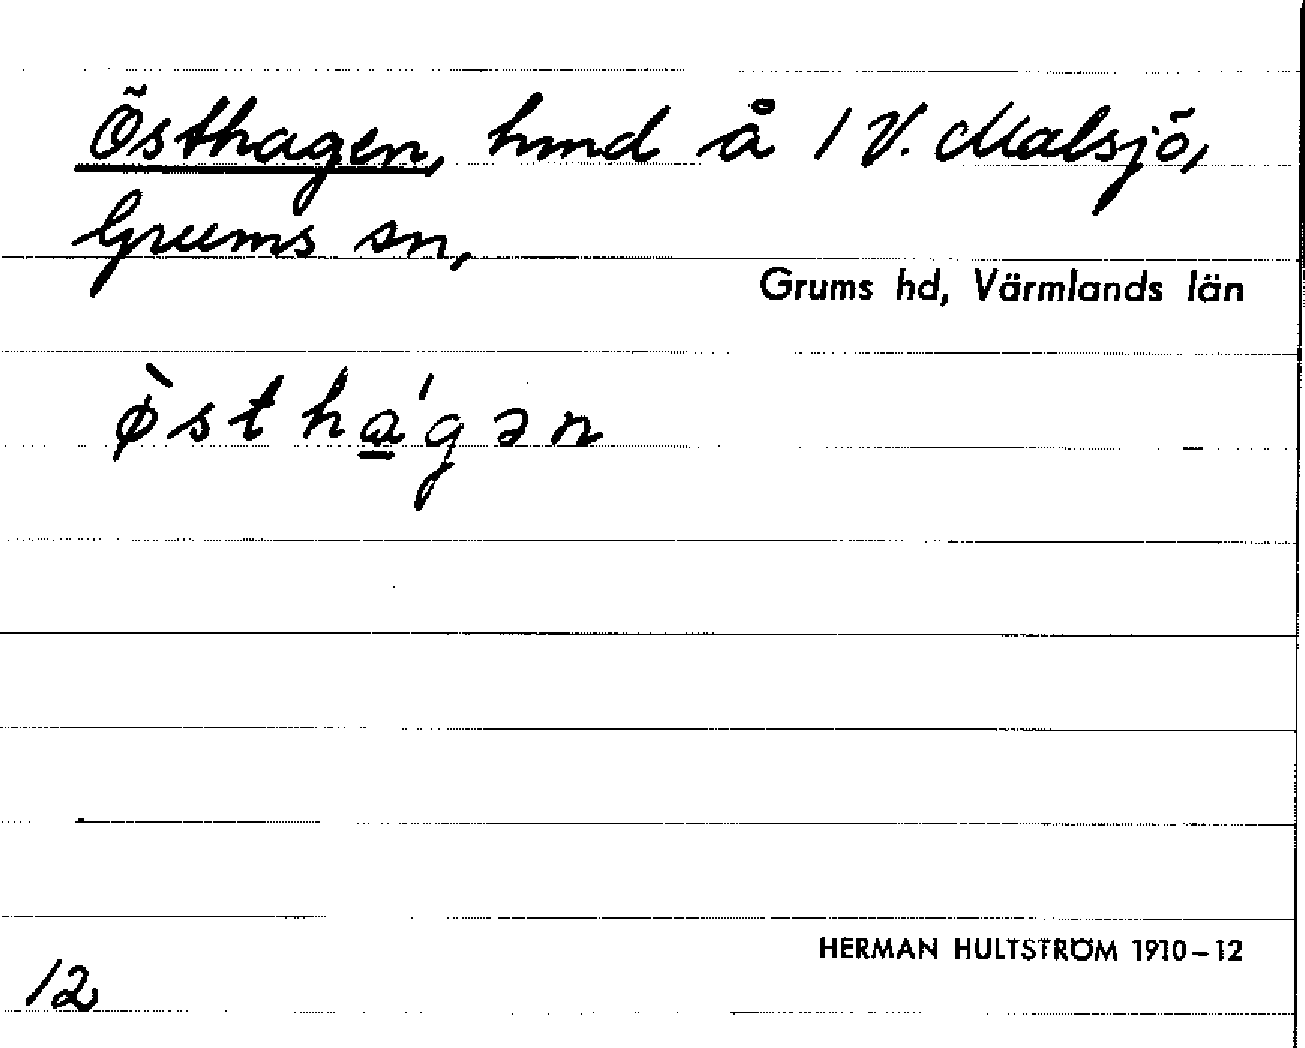 Östhagen, hmd å 1 V. Malsjö,
Grums sn,
Grums hd, Värmlands län
ø̀stha̲'gən
HERMAN HULTSTRÖM 1910–12
12